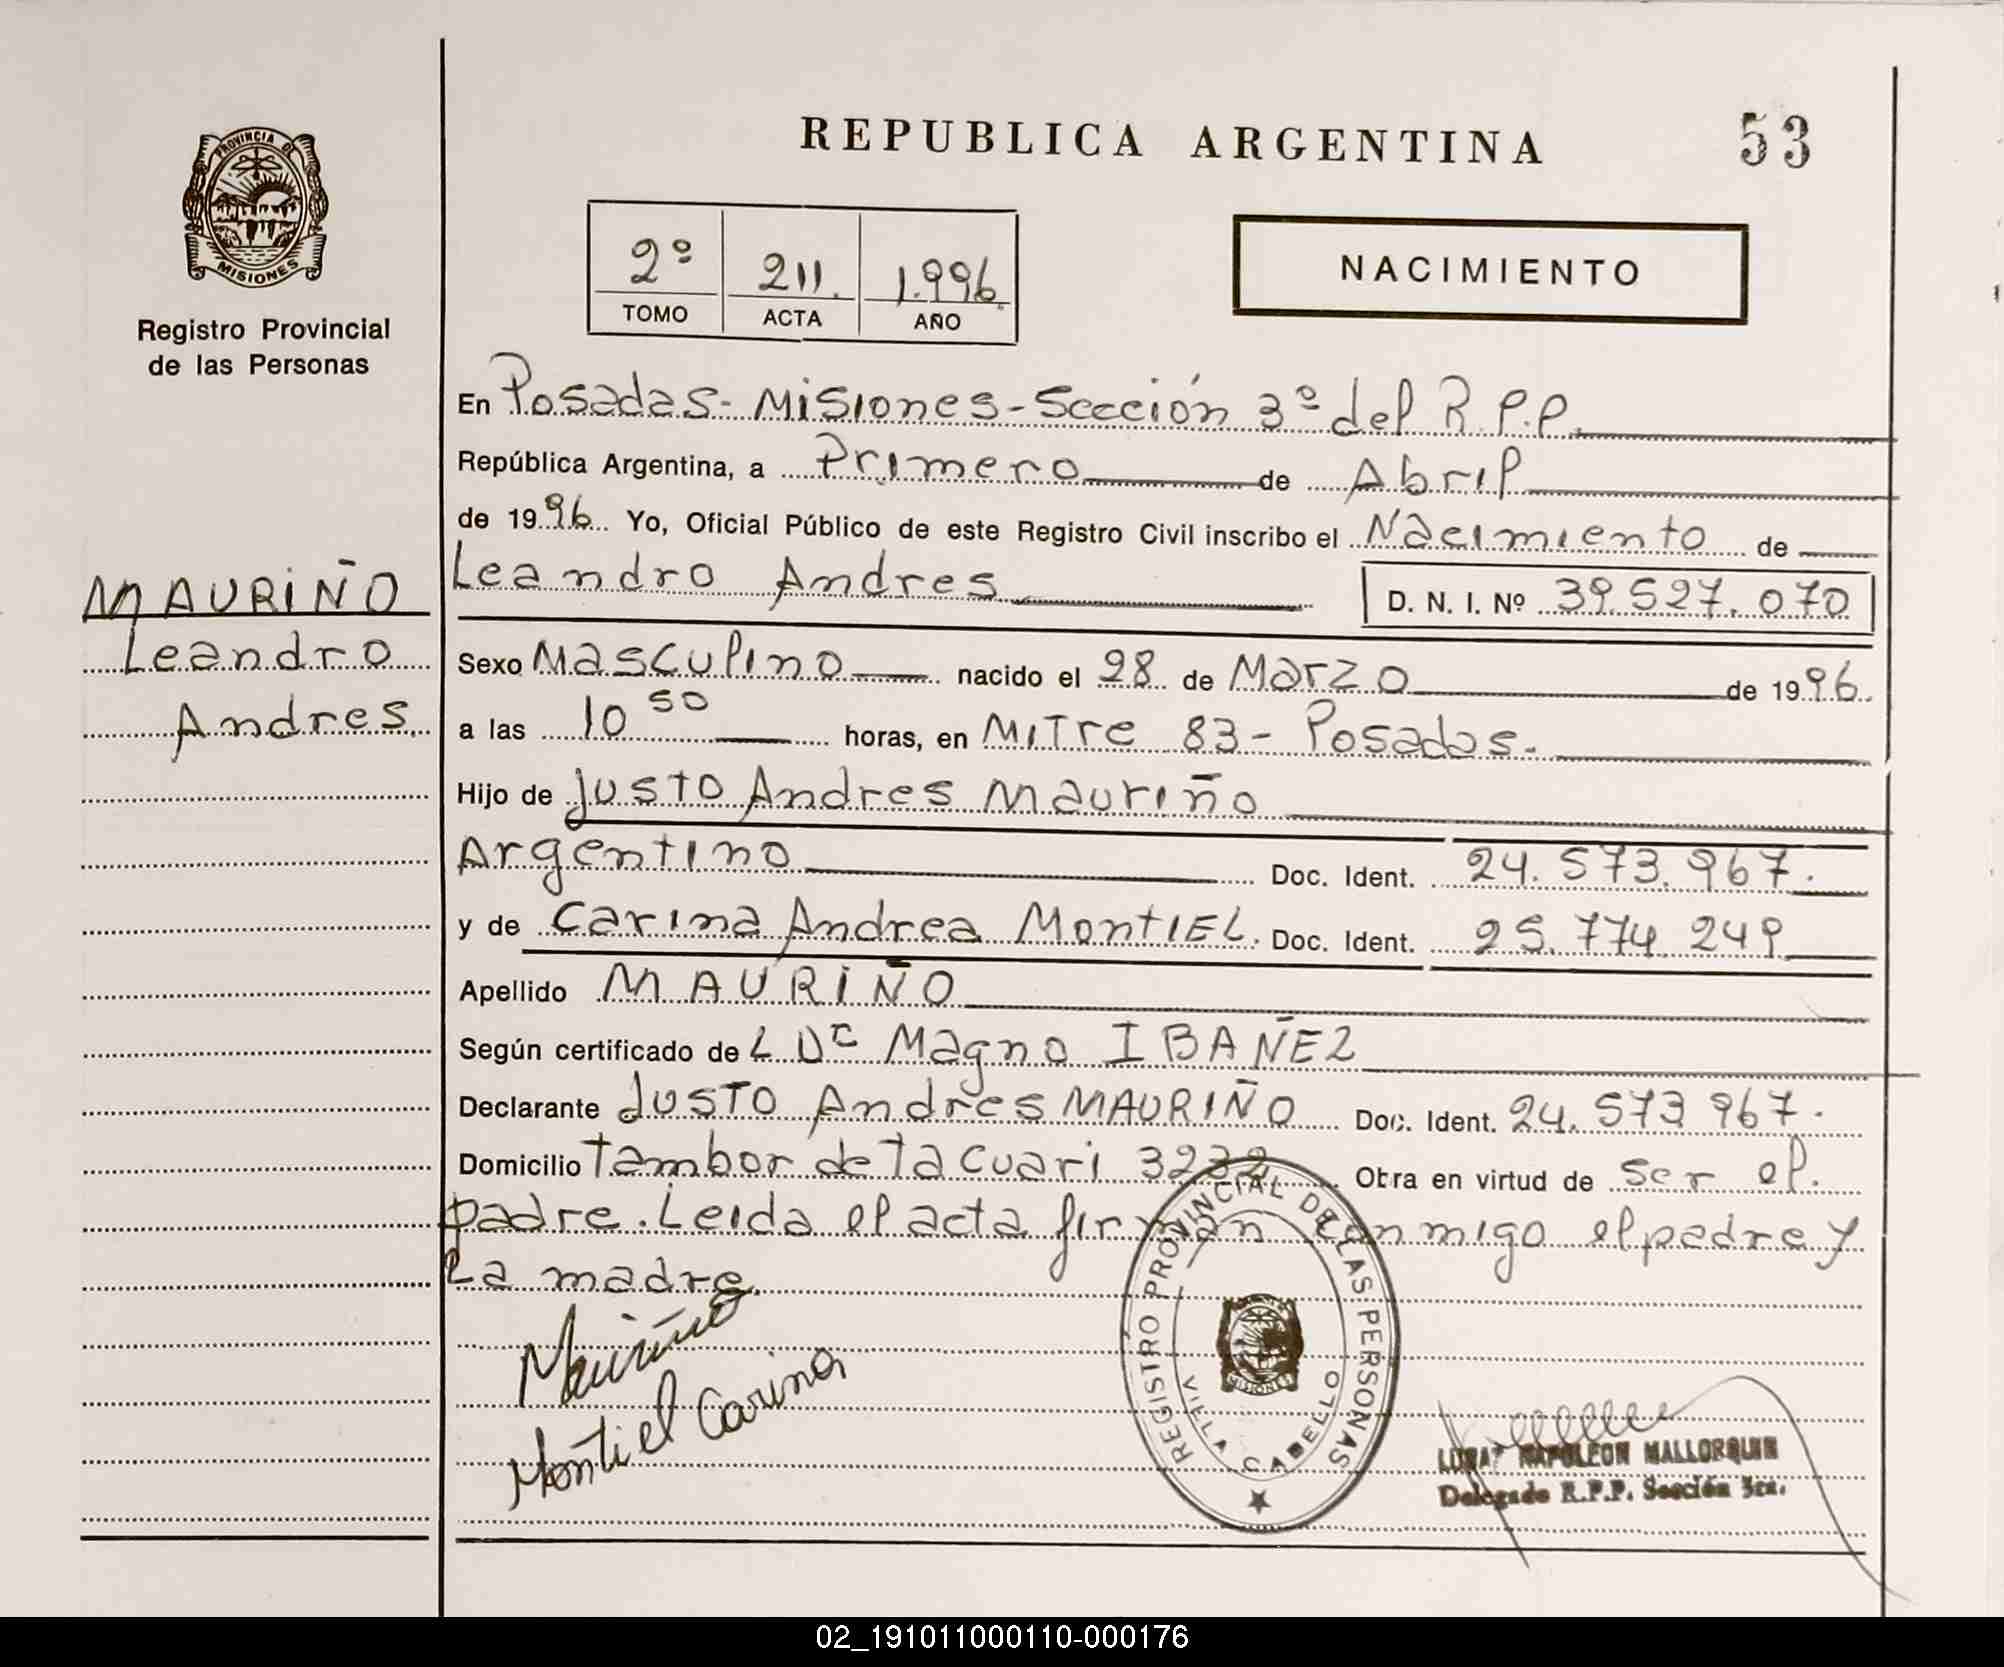 PROVINCIA DE
MISIONES
Registro Provincial
de las Personas
MAURIÑO
Leandro
Andres.
REPUBLICA ARGENTINA
53
2º 211. 1.996
TOMO ACTA AÑO
NACIMIENTO
En Posadas-Misiones-Sección 3º del R.P.P.
República Argentina, a Primero de Abril
de 1996 Yo, Oficial Público de este Registro Civil inscribo el Nacimiento de
Leandro Andres D. N. I. Nº 39.527.070
Sexo Masculino nacido el 28 de Marzo de 1996.
a las 10 50 horas, en Mitre 83- Posadas.
Hijo de Justo Andres Mauriño
Argentino Doc. Ident. 24.573.967.
y de Carina Andrea MontIEL. Doc. Ident. 25.774.249
Apellido MAURIÑO
Según certificado de Magno IBAÑEZ
Declarante JUSTO Andres MAURIÑO Doc. Ident. 24.573.967.
Domicilio Tambor de Tacuari 3232 Obra en virtud de ser el.
padre. Leida el acta firman conmigo el padre y
la madre.
Mauriño
Montiel Carina
REGISTRO PROVINCIAL DE LAS PERSONAS
MISIONES
VILLA CABELLO
NAPOLEON MALLORQUIN
Delegado R.P.P. Sección 3ra.
02_191011000110-000176